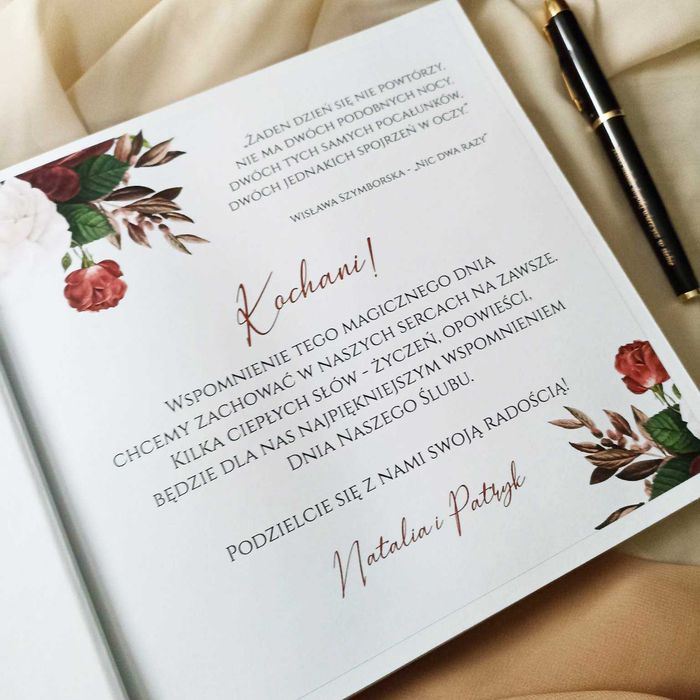 „Żaden dzień się nie powtórzy,
nie ma dwóch podobnych nocy,
dwóch tych samych pocałunków,
dwóch jednakich spojrzeń w oczy."
Wisława Szymborska - „Nic dwa razy"
Kochani!
Wspomnienie tego magicznego dnia
chcemy zachować w naszych sercach na zawsze.
Kilka ciepłych słów - życzeń, opowieści,
będzie dla nas najpiękniejszym wspomnieniem
Dnia Naszego Ślubu.
Podzielcie się z nami swoją radością!
Natalia i Patryk